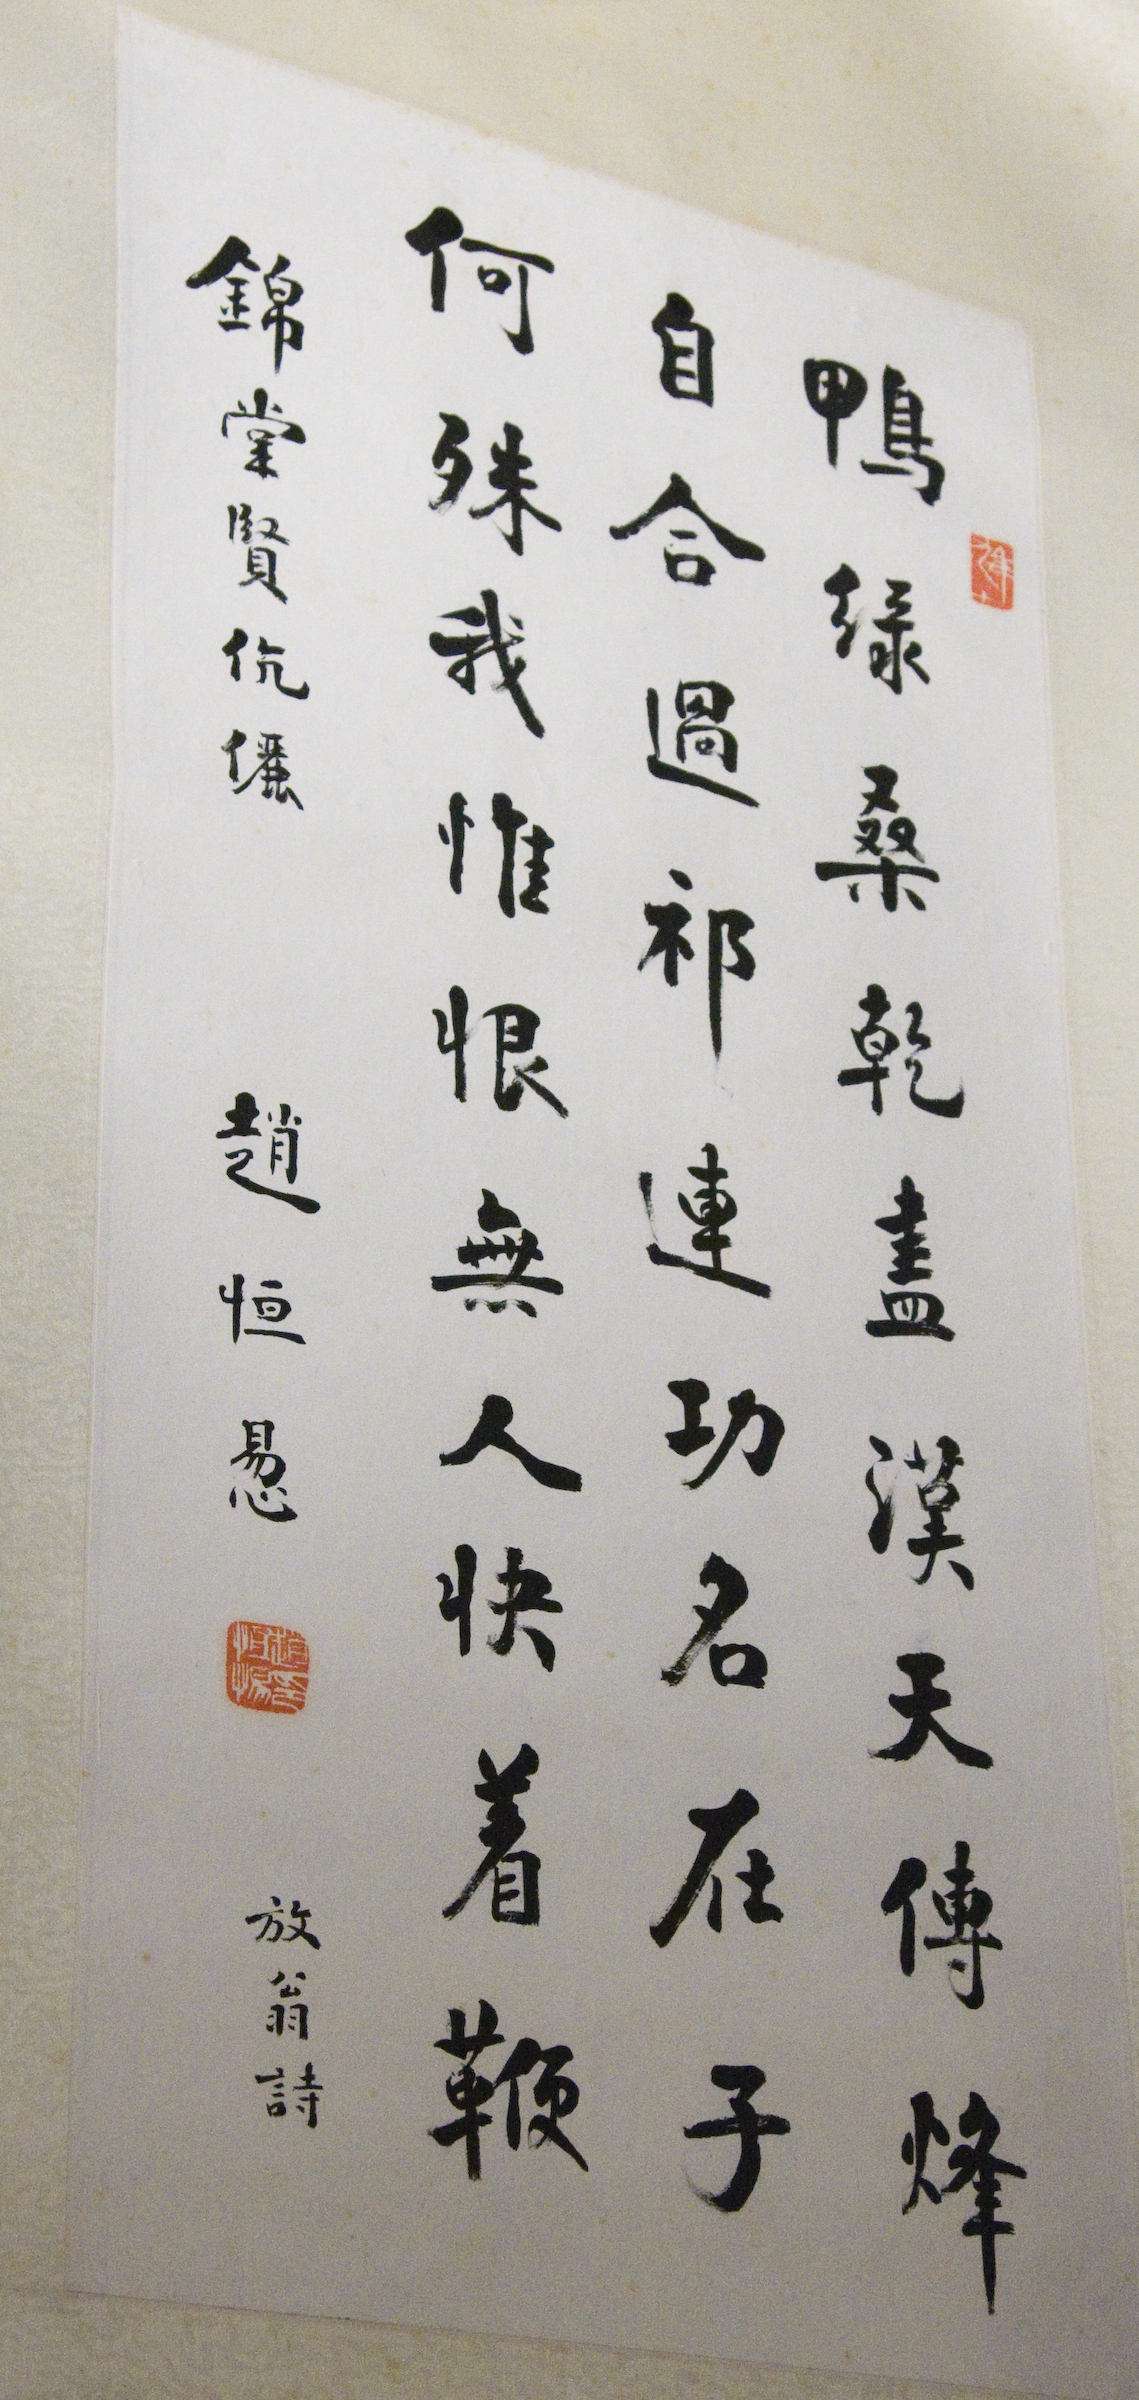 鴨緑桑乾盡漢天傳烽
自合過祁連功名在子
何殊我惟恨無人快着鞭
錦棠賢伉儷
趙恒惖
放翁詩